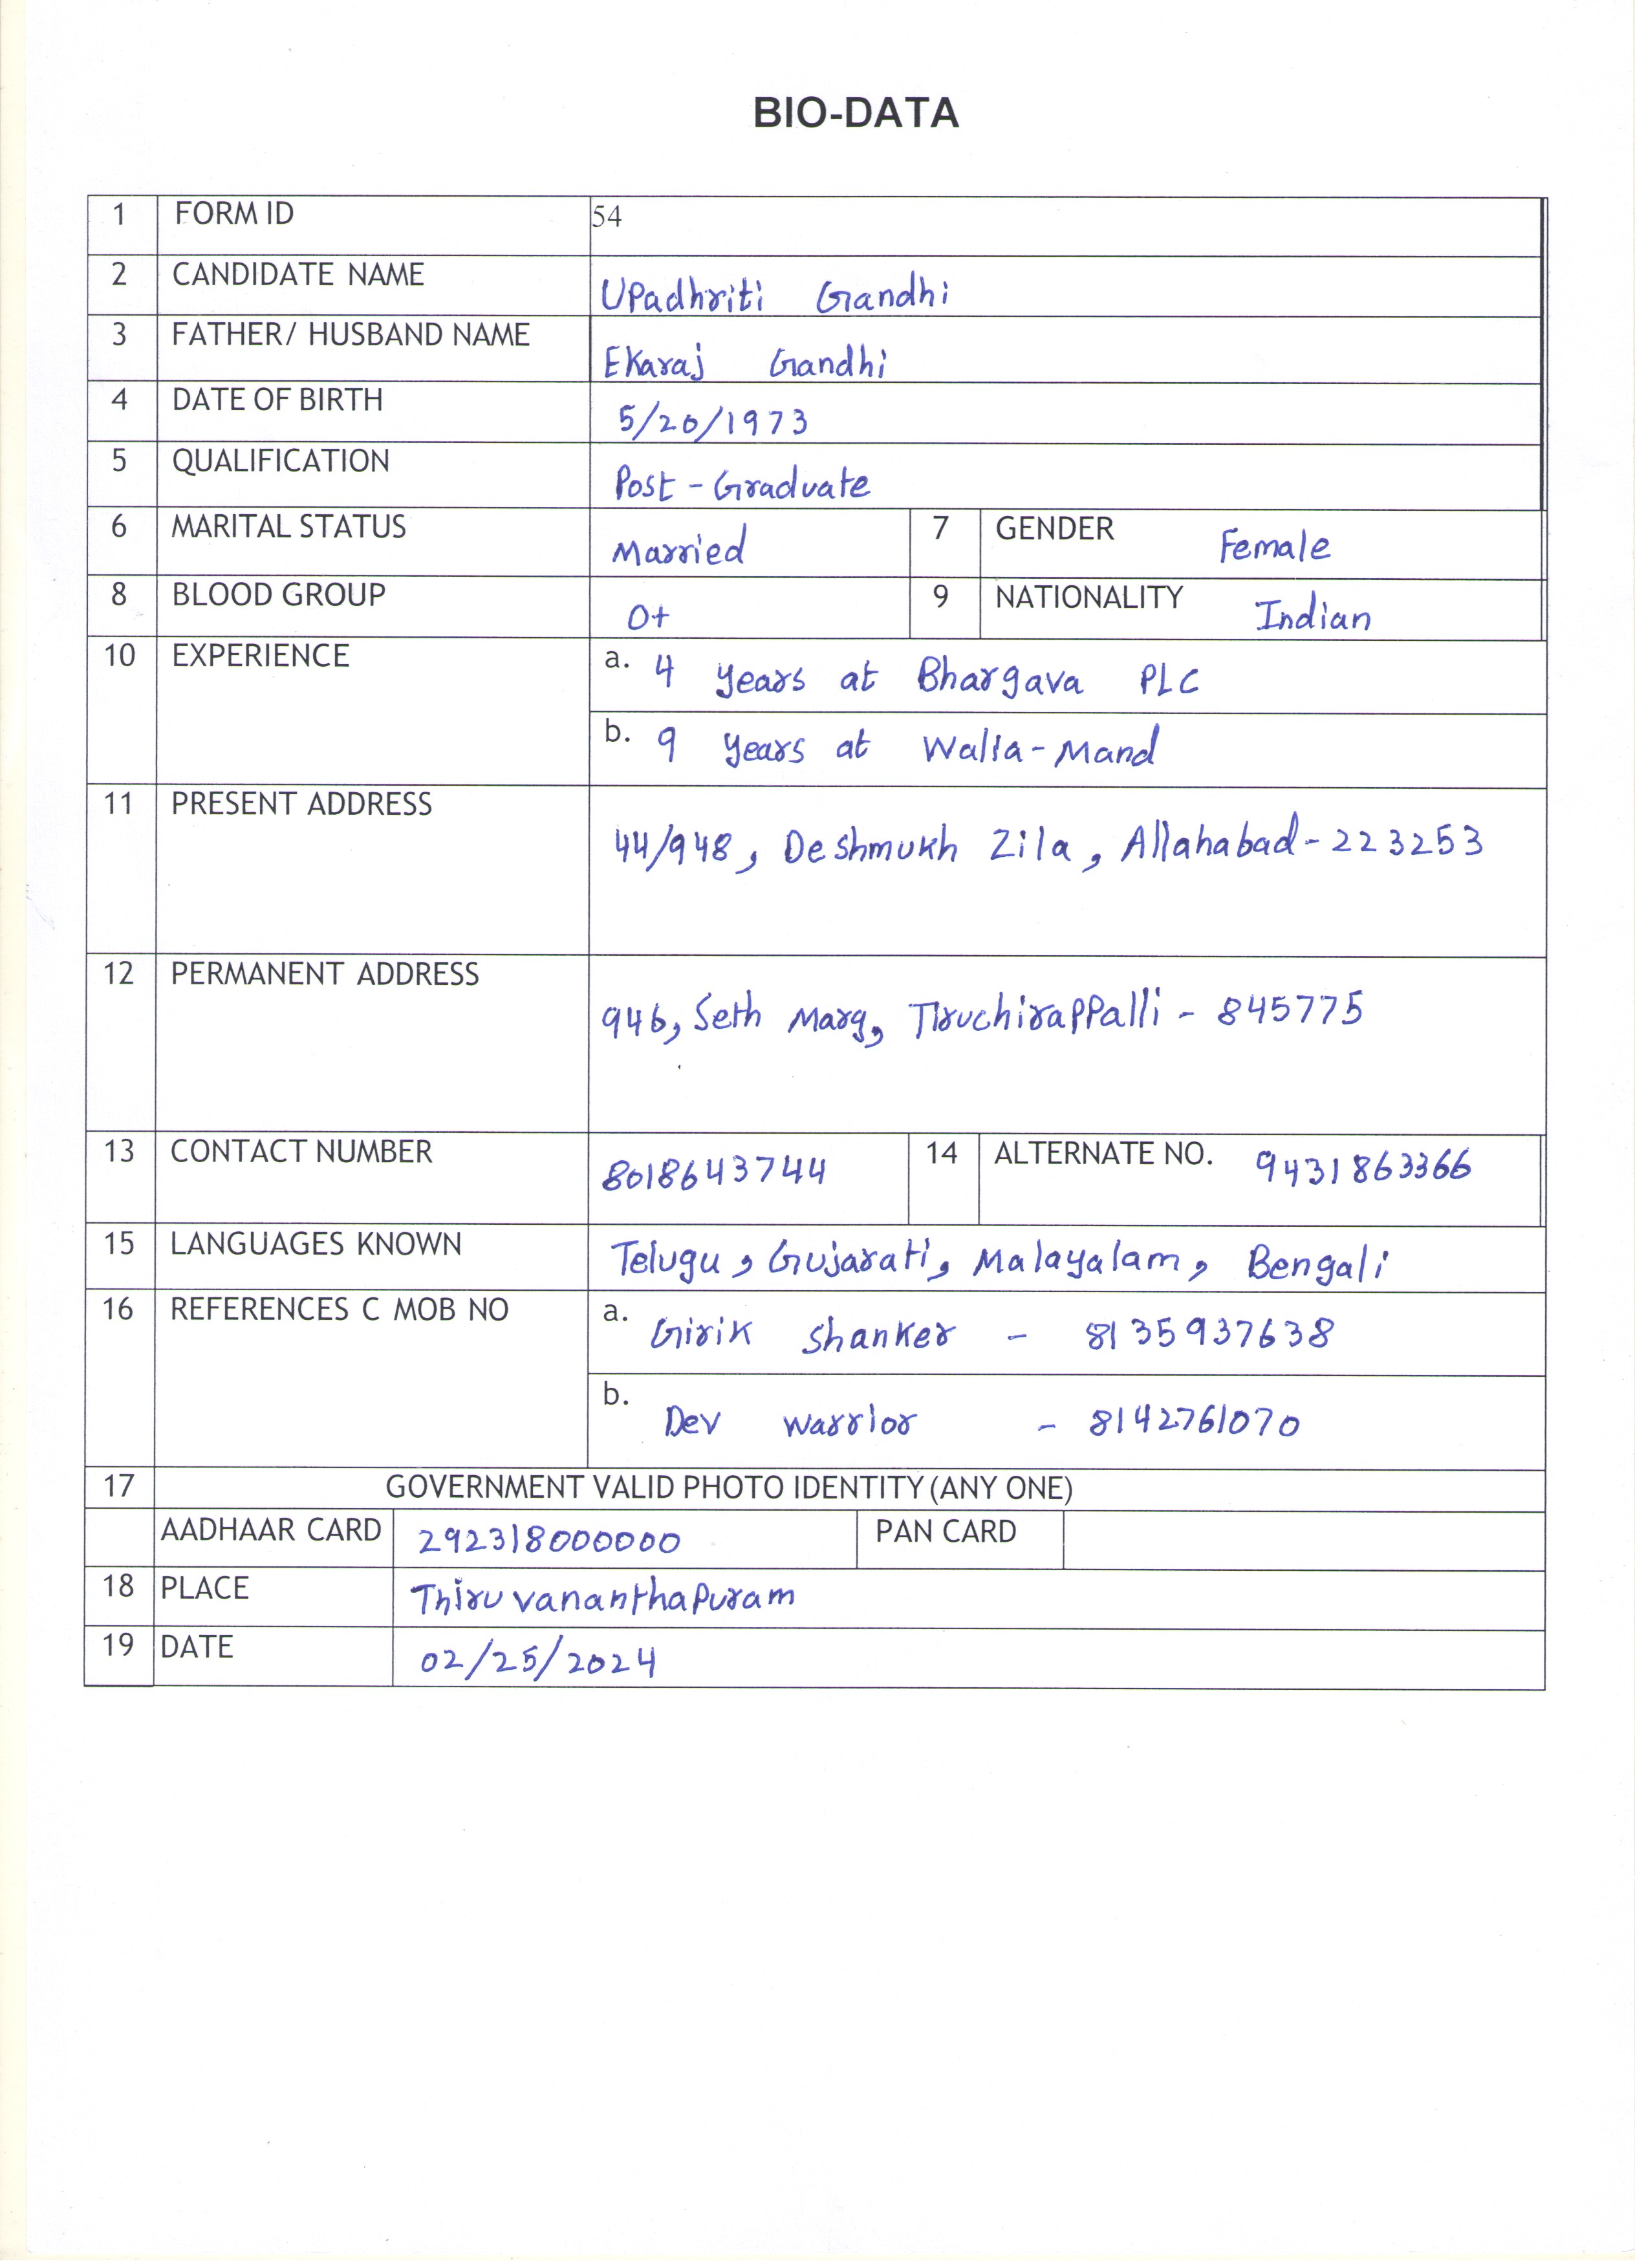 BIO-DATA
1 FORM ID 54
2 CANDIDATE NAME Upadhriti Gandhi
3 FATHER/ HUSBAND NAME Ekaraj Gandhi
4 DATE OF BIRTH 5/20/1973
5 QUALIFICATION Post-Graduate
6 MARITAL STATUS Married 7 GENDER Female
8 BLOOD GROUP O+ 9 NATIONALITY Indian
10 EXPERIENCE a. 4 years at Bhargava PLC
b. 9 years at Walla-Mand
11 PRESENT ADDRESS
44/948, Deshmukh Zila, Allahabad-223253
12 PERMANENT ADDRESS
946, Seth Marg, Tiruchirappalli - 845775
13 CONTACT NUMBER 8018643744 14 ALTERNATE NO. 9431863366
15 LANGUAGES KNOWN Telugu, Gujarati, Malayalam, Bengali
16 REFERENCES C MOB NO a. Girik Shanker - 8135937638
b. Dev Warrior - 8142761070
17 GOVERNMENT VALID PHOTO IDENTITY (ANY ONE)
AADHAAR CARD 292318000000 PAN CARD
18 PLACE Thiruvananthapuram
19 DATE 02/25/2024